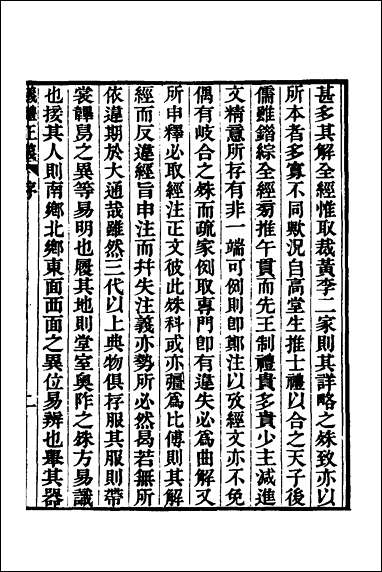 甚多其解全經惟取裁黃李二家則其詳略之殊致亦以
所本者多寡不同歟況自高堂生推士禮以合之天子後
儒雖錯綜全經旁推午貫而先王制禮貴多貴少主減進
文精意所存有非一端可例則卽鄭注以攷經文亦不免
偶有岐合之殊而疏家例取專門卽有違失必爲曲解又
所申釋必取經注正文彼此殊科或亦彊爲比傅則其解
經而反違經旨申注而幷失注義亦勢所必然曷若無所
依違期於大通哉雖然三代以上典物俱存服其服則帶
裳韠舄之異等易明也履其地則堂室奧阼之殊方易識
也接其人則南鄉北鄉東面西面之異位易辨也舉其器
儀禮正義 序 二